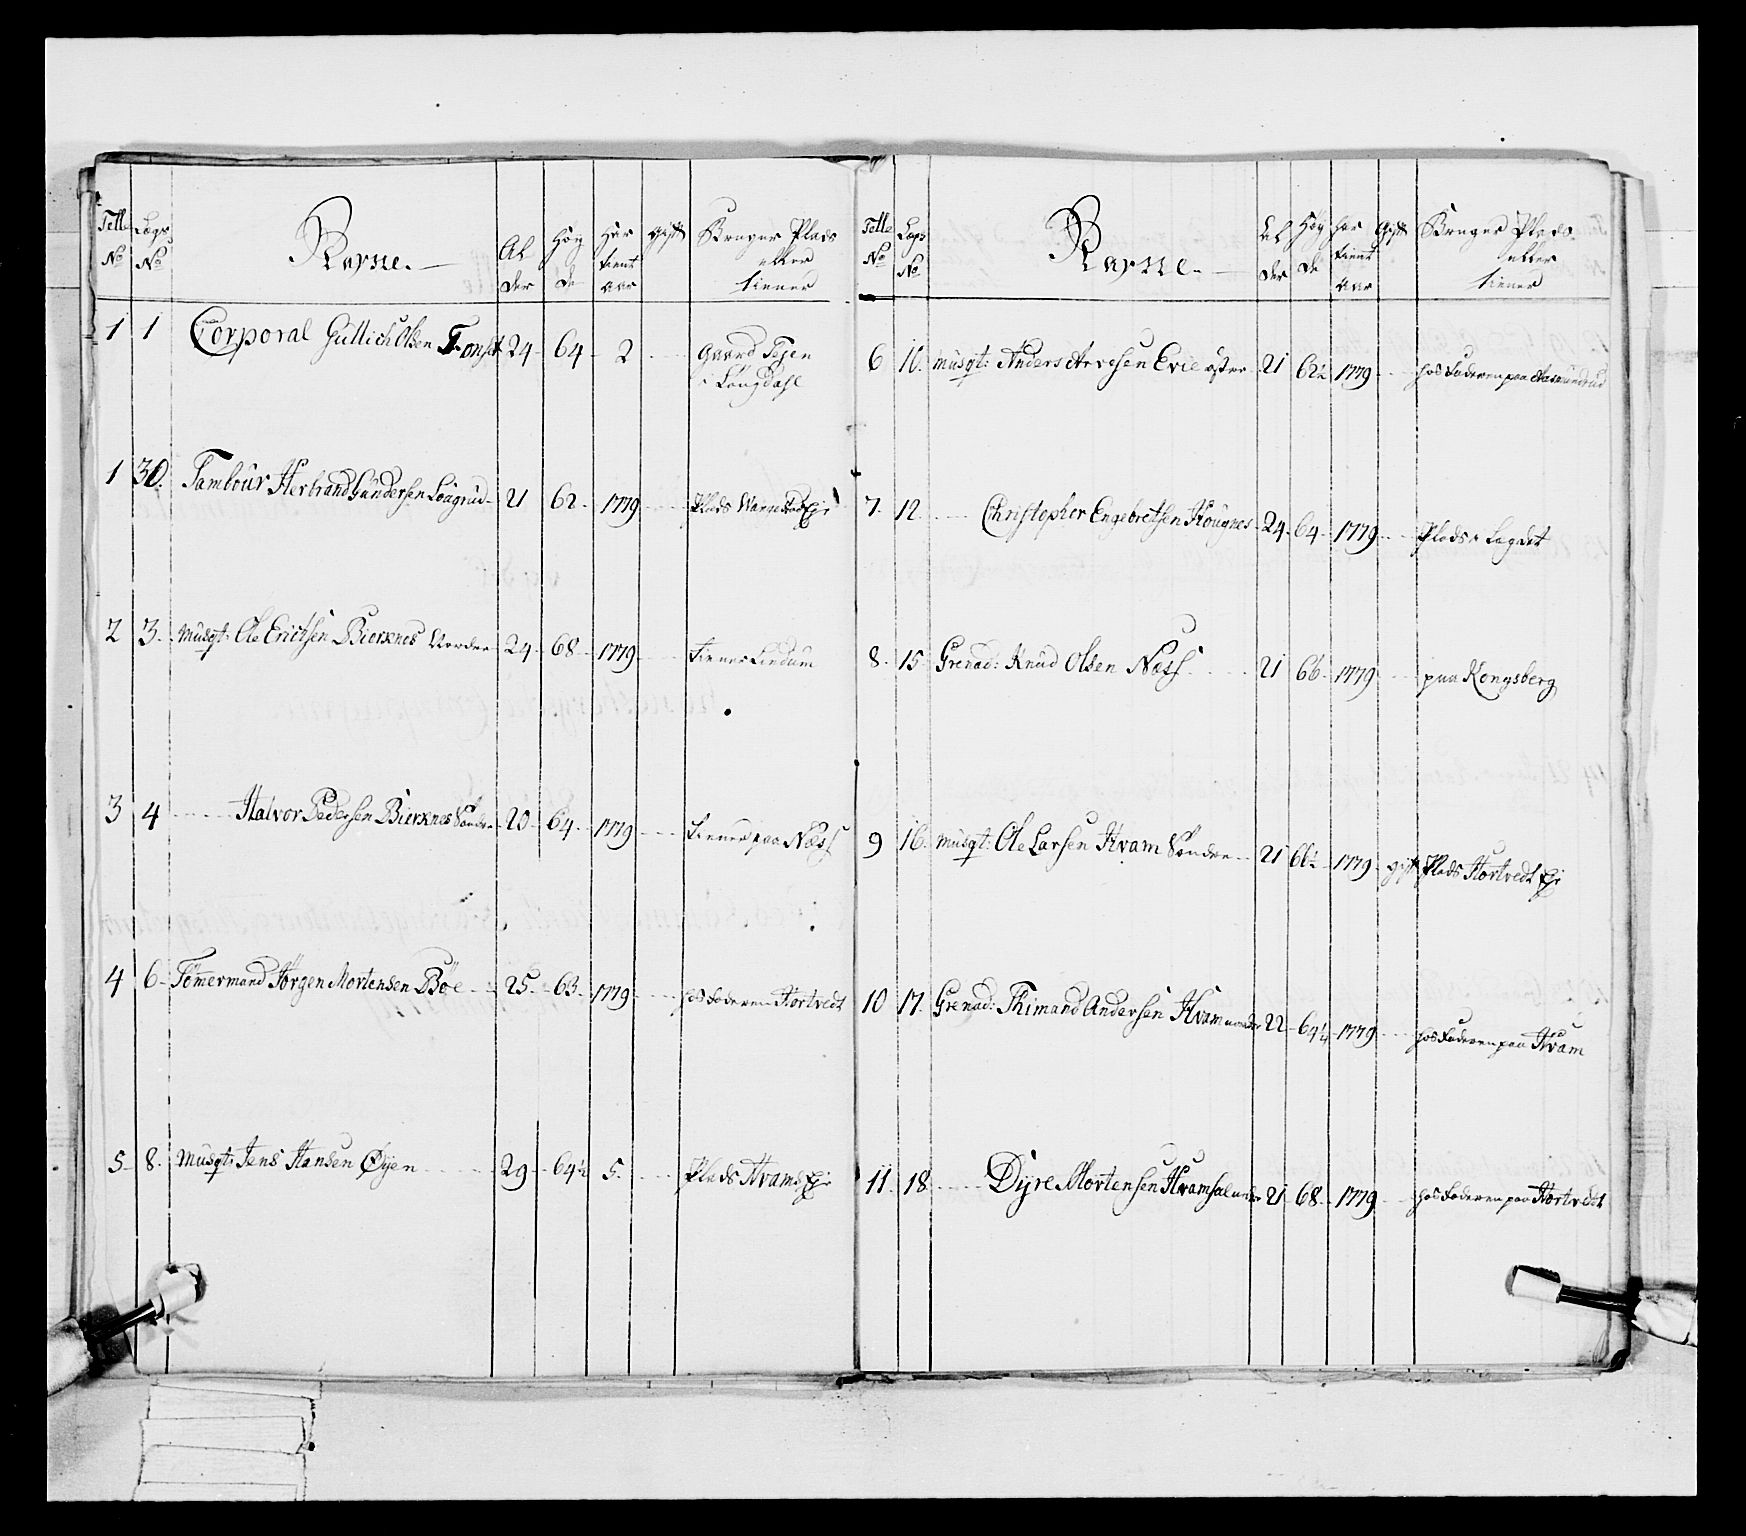 Telle No Lægs No Navne. Al der Høy de Har tient aar Gift Bruger Plads eller tiener
1 1 Corporal Gullich Olsen 24 64 2 Gaard Tejen
i Longdahl
1 30. Tambour Herbrand Gundersen 21 62 1779 Plads
2 3. Musqt: Ole Erichsen Bierknes Nordre 24 68 1779 tiener Lindum
3 4 Halvor Pedersen Bierknes Søndre 20 64 1779 tiener paa Næss
4 6 Tømmermand Jørgen Mortensen Bøe 25 63 1779 hos Faderen Hortvedt
5 8. Musqt: Jens Hansen Øyen 29 64½ 5. Plads Hvams Eje
Telle No Lægs No Navne. Al der Høy de har tient aar Gift Bruger Plads eller tiener
6 10. Musqt: Anders Arvesen Evie øster 21 62½ 1779 hos Faderen paa Aasmundrud
7. 12. Christopher Engebretsen Hougnes 24 64 1779 Plads i Lægdet
8. 15 Grenad: Knud Olsen Næss 21 66 1779 paa Kongsberg
9 16. Musqt: Ole Larsen Hvam Søndre 21 66½ 1779 gift Plads Hortvedt Eje
10 17. Grenad: Thimand Andersen Hvam nordre 22 64¼ 1779 hos Faderen paa Hvam
11. 18. Dyre Mortensen 21 68 1779 hos Faderen paa Hortvedt